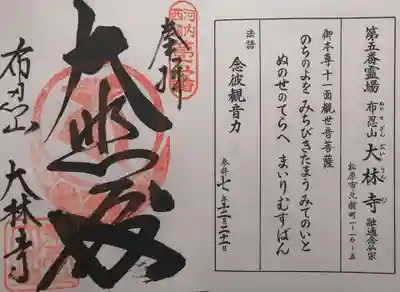 第五番霊場
布忍山 大林寺 融通念仏宗
ぬのせざん だいりんじ
松原市北新町一-一〇-五
御本尊十一面観世音菩薩
のちのよを みちびきたまう みてのいと
ぬのせのてらへ まいりむすばん
法語
念彼観音力
参拝 七年十二月二十一日
河内
西国
奉拝
大悲殿
布忍山
大林寺